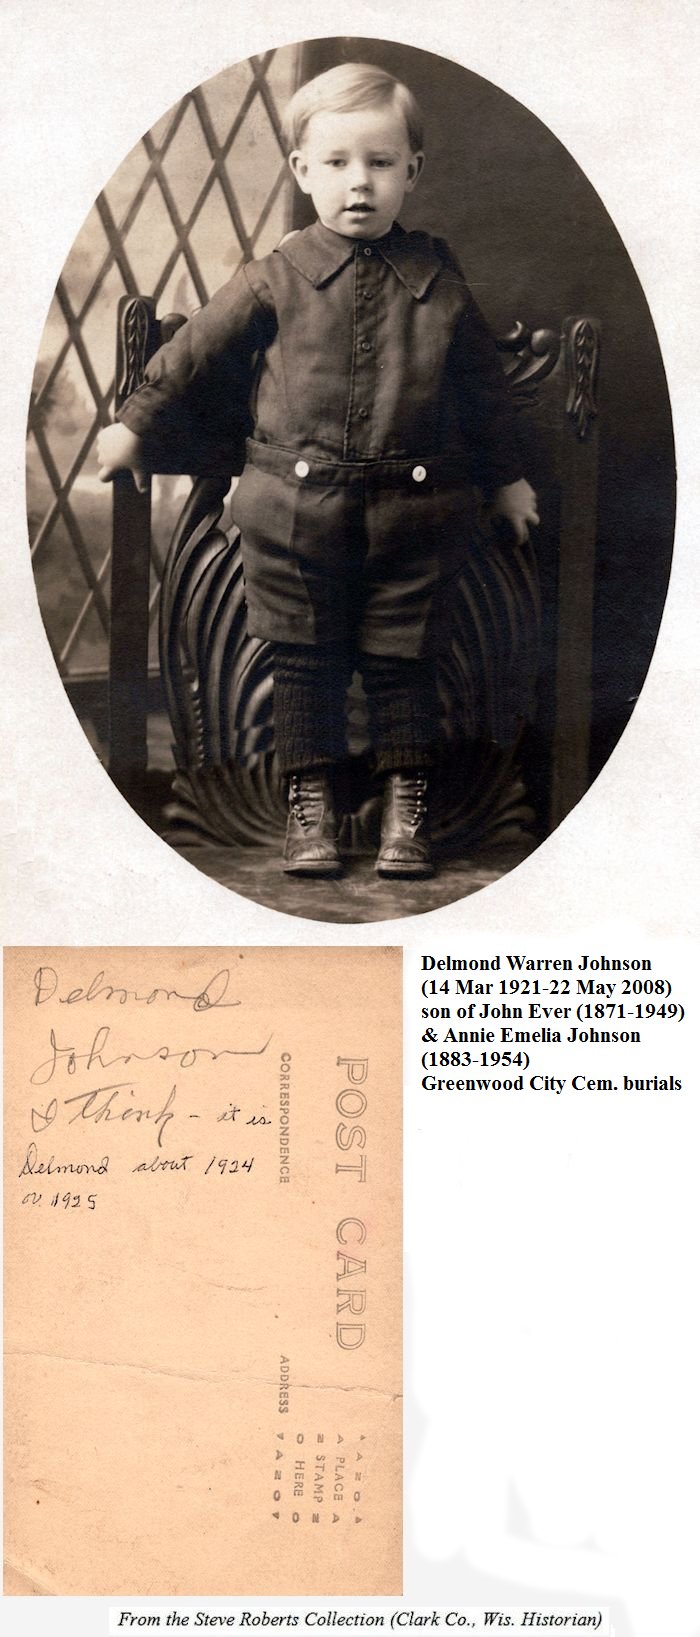 Delmond
Johnson
I think - it is
Delmond about 1924
or 1925
CORRESPONDENCE
POST CARD
ADDRESS
AZO
PLACE
STAMP
HERE
AZO
Delmond Warren Johnson
(14 Mar 1921-22 May 2008)
son of John Ever (1871-1949)
& Annie Emelia Johnson
(1883-1954)
Greenwood City Cem. burials
From the Steve Roberts Collection (Clark Co., Wis. Historian)